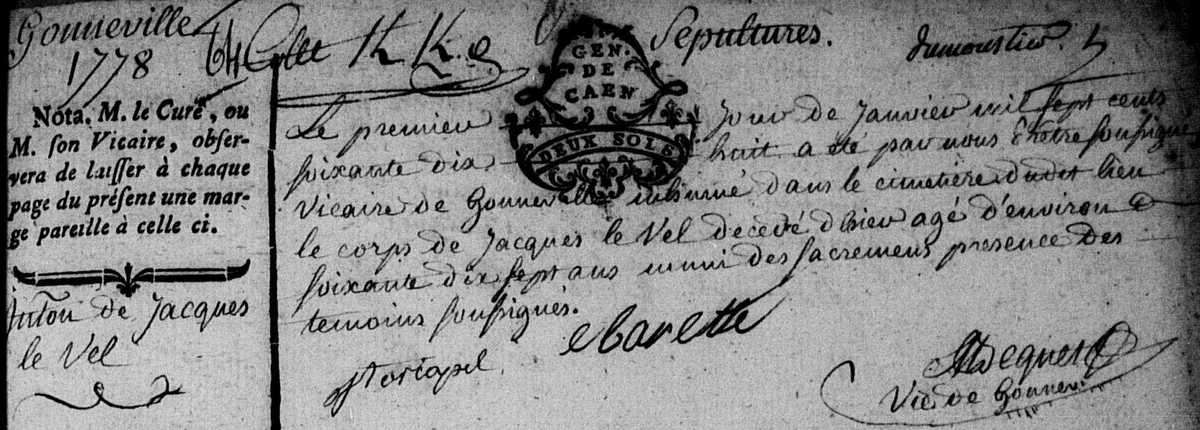 Gonneville
1778
Sepultures.
dumoustier
GEN.
DE
CAEN
DEUX SOLS
Nota. M. le Curé, ou
M. ſon Vicaire, obſer-
vera de laiſſer à chaque
page du préſent une mar-
ge pareille à celle ci.
Inhôn de Jacques
le Vel
Le premier jour de Janvier mil sept cents
soixante dix huit a été par nous Prêtre soussigné
Vicaire de Gonneville inhumé dans le cimetière dudit lieu
le corps de Jacques le Vel decedé d'hier agé d'environ
soixante dix sept ans muni des sacremens presence des
temoins soussignés.
Vic de Gonnev.